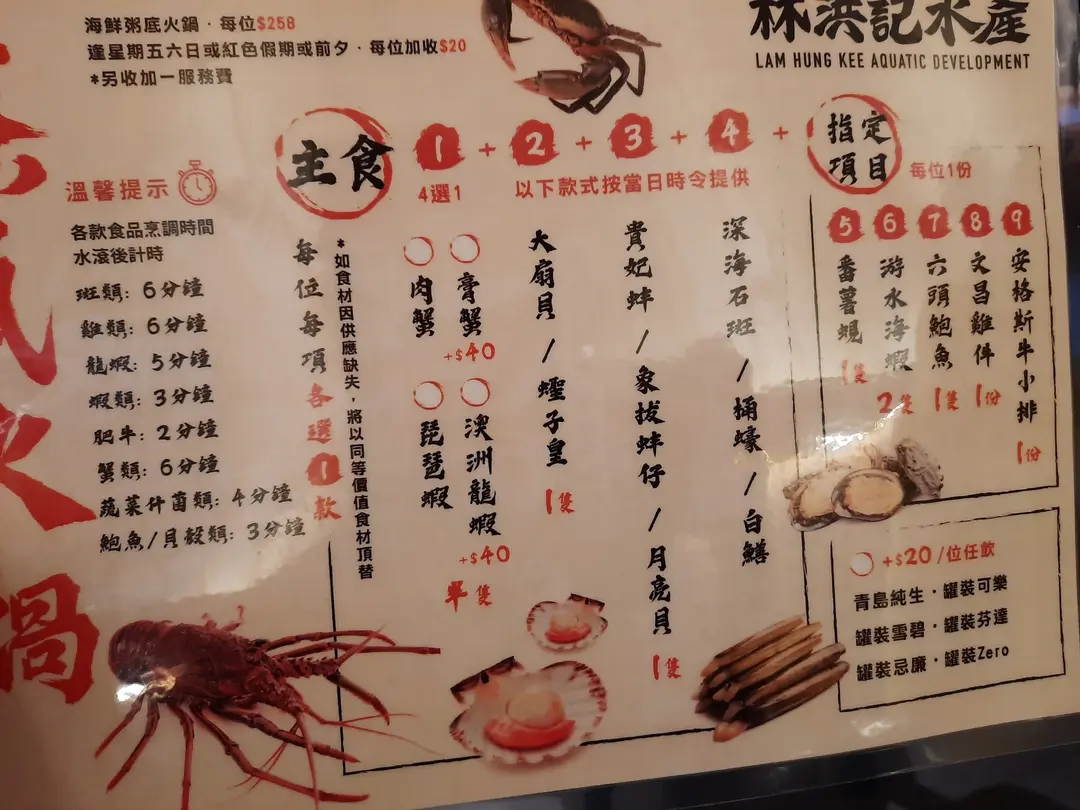 海鮮粥底火鍋·每位$258
逢星期五六日或紅色假期或前夕·每位加收$20
*另收加一服務費
林洪記水產
LAM HUNG KEE AQUATIC DEVELOPMENT
溫馨提示
各款食品烹調時間
水滾後計時
斑類: 6分鐘
雞類: 6分鐘
龍蝦: 5分鐘
蝦類: 3分鐘
肥牛: 2分鐘
蟹類: 6分鐘
蔬菜什菌類: 4分鐘
鮑魚/貝殼類: 3分鐘
主食 1 + 2 + 3 + 4 + 指定項目
4選1
以下款式按當日時令提供
每位1份
每位每項各選1款
*如食材因供應缺失，將以同等價值食材頂替
肉蟹
膏蟹
+$40
琵琶蝦
澳洲龍蝦
+$40
半隻
大扇貝/蟶子皇
1隻
貴妃蚌/象拔蚌仔/月亮貝
1隻
深海石斑/桶蠔/白鱔
5 6 7 8 9
番薯蜆
1隻
游水海蝦
2隻
六頭鮑魚
1隻
文昌雞件
1份
安格斯牛小排
1份
+$20/位任飲
青島純生·罐裝可樂
罐裝雪碧·罐裝芬達
罐裝忌廉·罐裝Zero
鍋